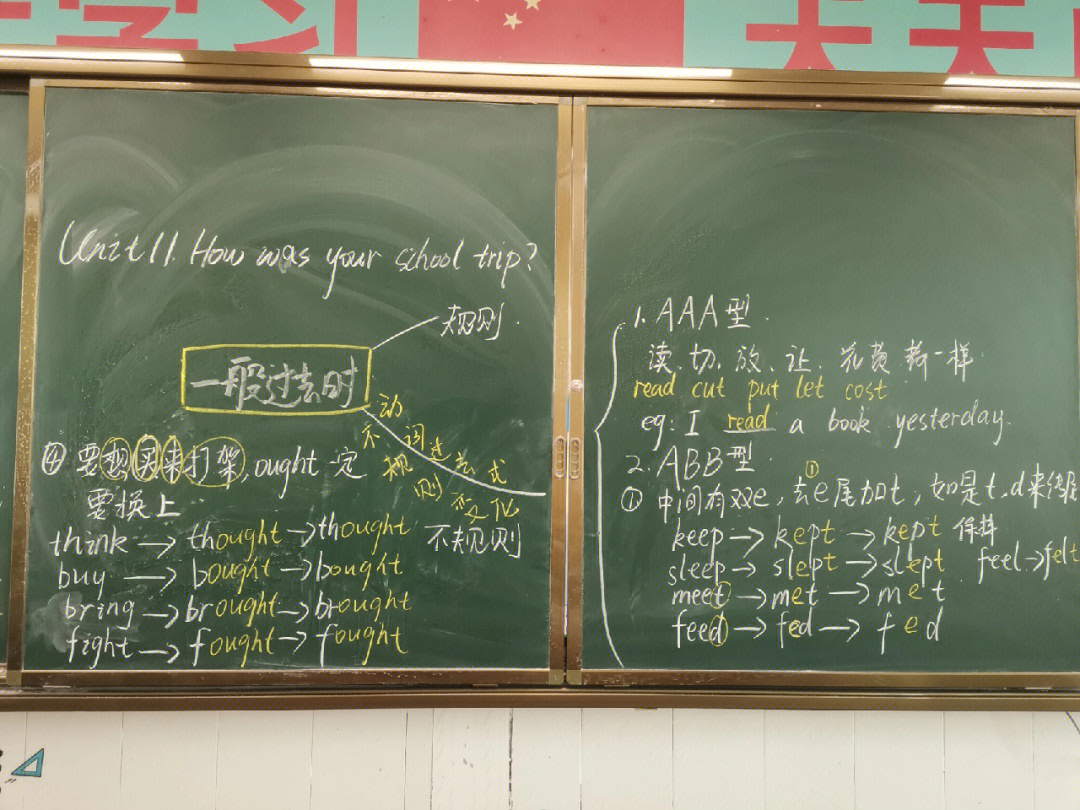 学习 天天
Unit 11. How was your school trip?
规则
一般过去时
动词过去式
不规则变化
不规则
④ 要想买来打架, ought 一定
要换上
think → thought → thought
buy → bought → bought
bring → brought → brought
fight → fought → fought
1. AAA型.
读、切、放、让、花费都一样.
read cut put let cost
eg: I read a book yesterday.
2. ABB型
① 中间有双e, 去e尾加t, 如是t、d来
keep → kept → kept 保持
sleep → slept → slept feel → felt
meet → met → met
feed → fed → fed